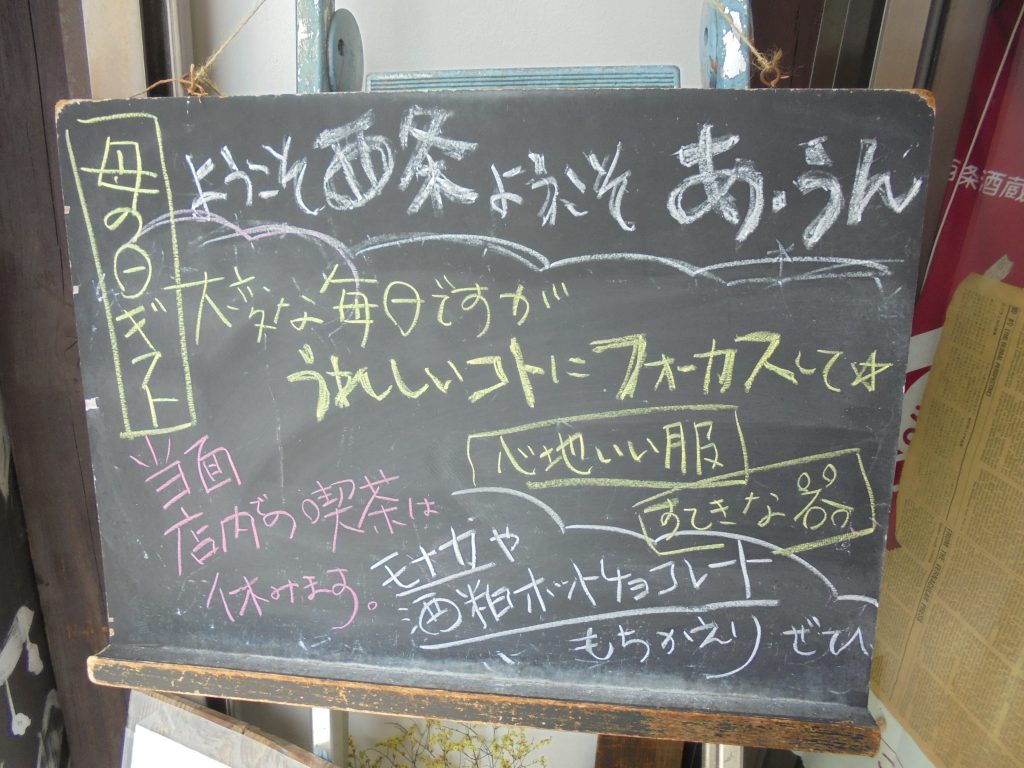 母の日ギフト
ようこそ西条ようこそ あ・うん
大変な毎日ですが
うれしいコトにフォーカスして☆
心地いい服
すてきな器
当面
店内での喫茶は
休みます。
モナカや
酒粕ホットチョコレート
もちかえり ぜひ
条酒蔵